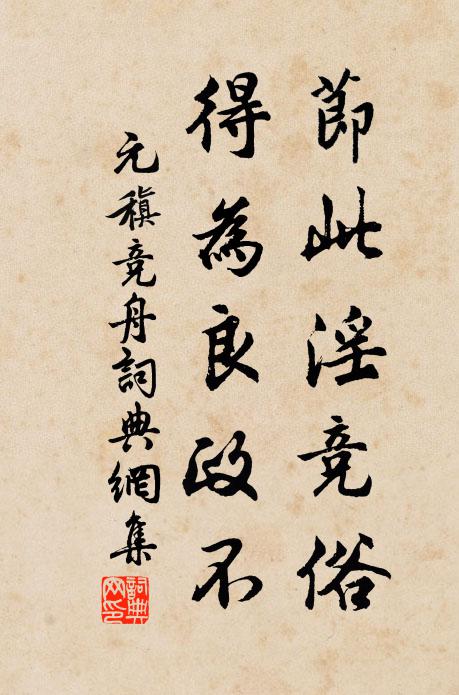 節此淫竞俗
得為良政不
元稹竞舟詞典網集
詞典网印